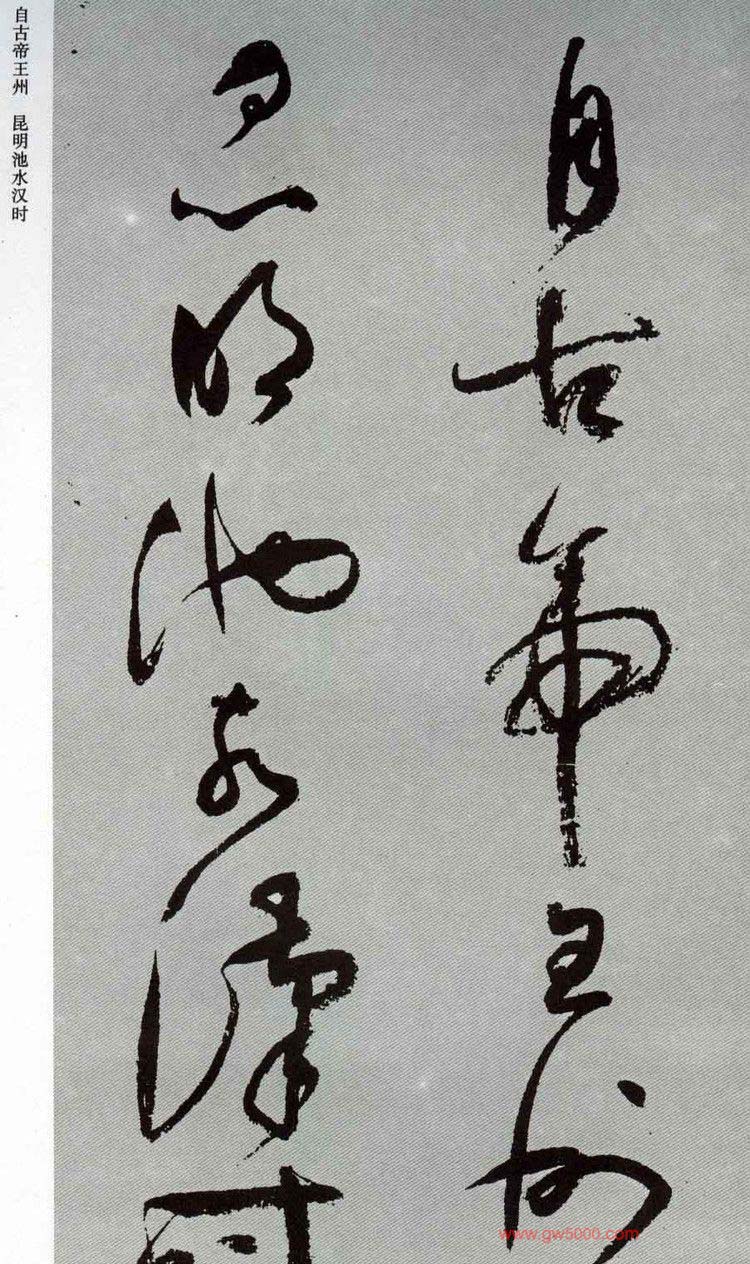 自古帝王州　昆明池水汉时
自古帝王州
昆明池水漢時
www.gw5000.com